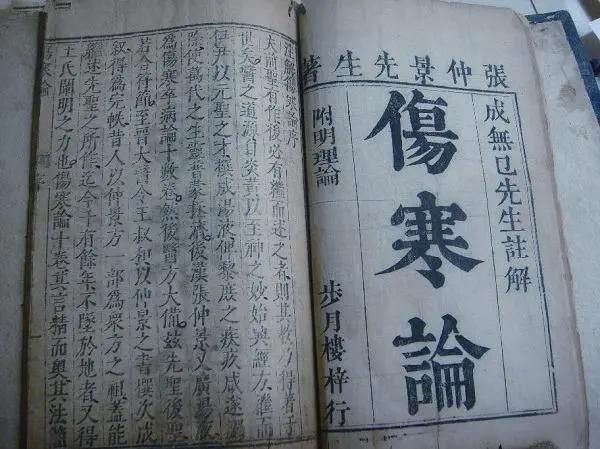 張仲景先生著
成無己先生註解
傷寒論
附明理論
步月樓梓行
註解傷寒論序
夫前聖有作後必有繼而述之者則其教乃得著于
世矣醫之道源自炎黃以至神之妙始興經方繼而
伊尹以元聖之才撰成湯液俾黎庶之疾疚咸遂蠲
除使萬代之生靈普蒙拯濟後漢張仲景又廣湯液
為傷寒卒病論十數卷然後醫方大備茲先聖後聖
若合符節至晉太醫令王叔和以仲景之書撰次成
敘得為完帙昔人以仲景方一部為衆方之祖蓋能
繼述先聖之所作迄今千有餘年不墜於地者又得
王氏闡明之力也傷寒論十卷其言精而奧其法簡